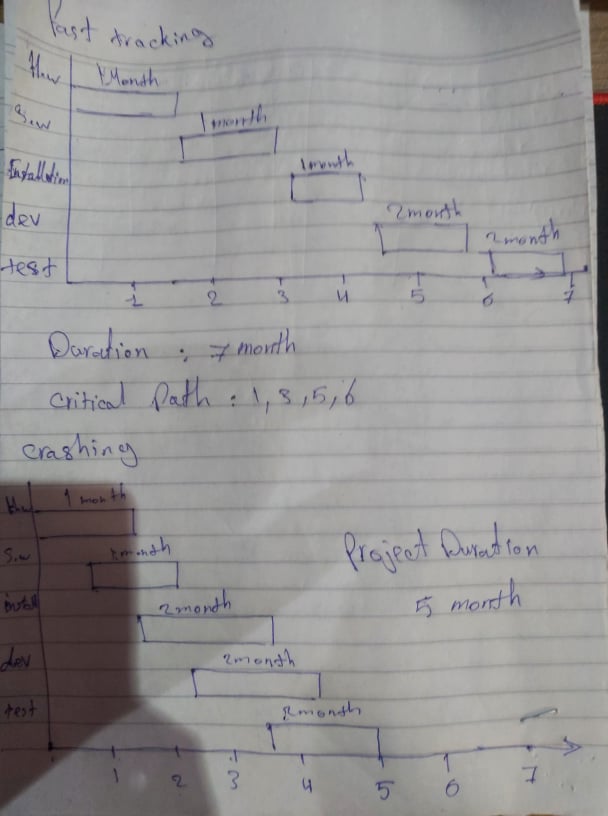 Fast tracking
H.w 1 Month
S.w 1 month
Installation 1 month
dev 2 month
test 2 month
1 2 3 4 5 6 7
Duration : 7 month
Critical Path : 1, 3, 5, 6
Crashing
H.w 1 month
S.w month
Project Duration
install 2 month
5 month
dev 2 month
test 2 month
1 2 3 4 5 6 7